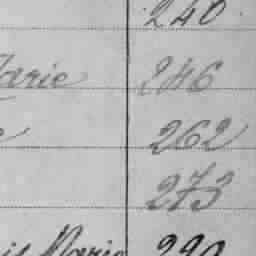 240
Marie 246
262
273
Marie 290